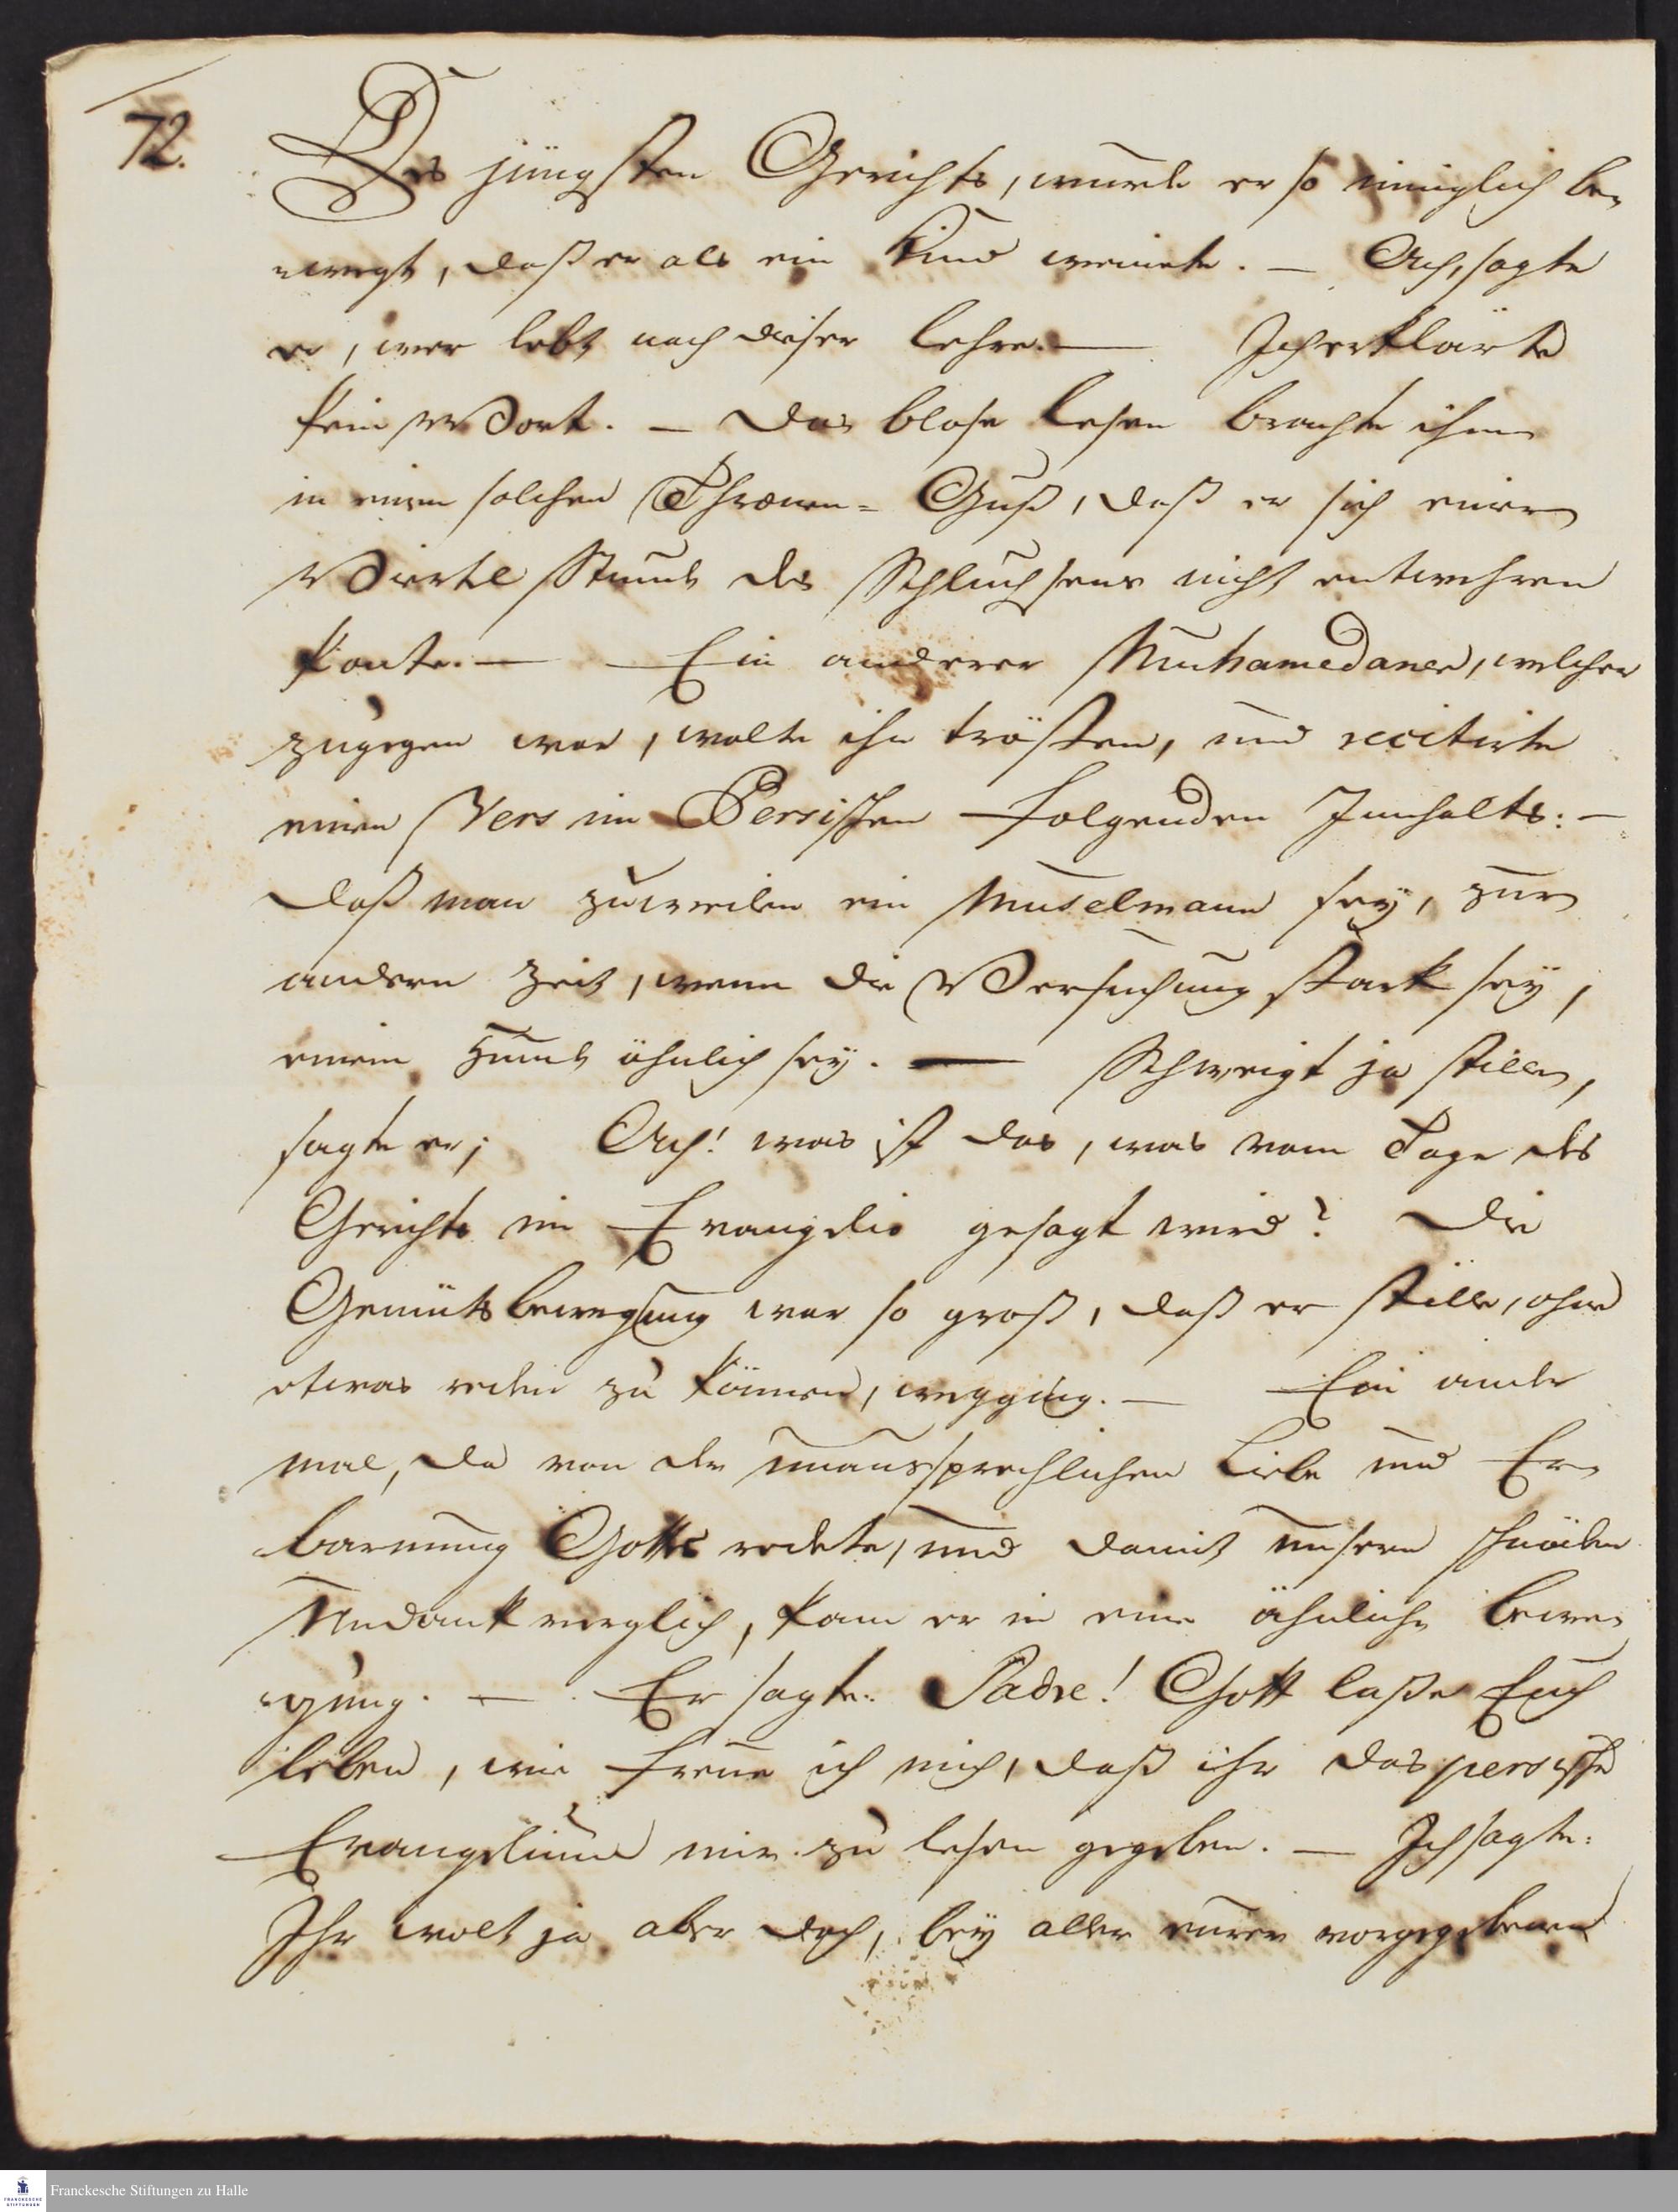 72.
Des jüngsten Gerichts, wurde er so inniglich be-
wegt, daß er als ein Kind weinete. — Ach, sagte
er, wer lebt nach dieser Lehre. — Ich erklärte
kein Wort. — Das blose Lesen brachte ihn
in einen solchen Thränen-Guß, daß er sich einer
Viertel Stunde des Schluchsens nicht entwehren
konte. — Ein anderer Muhamedaner, welcher
zugegen war, wolte ihn trösten, und recitirte
einen Vers im Persischen folgenden Innhalts: —
daß man zuweilen ein Muselmann sey, zur
andern Zeit, wenn die Versuchung stark sey,
einem Hunde ähnlich sey. — Schweigt ja stille,
sagte er; Ach! was ist das, was vom Tage des
Gerichts im Evangelio gesagt wird? Die
Gemütsbewegung war so groß, daß er stille, ohne
etwas reden zu können, wegging. — Ein ander
mal, da von der unaussprechlichen Liebe und Er-
barmung Gottes redete, und damit unsern schnöden
Undank verglich, kam er in eine ähnliche bewe-
gung. — Er sagte: Padre! Gott laße Euch
leben, wie freue ich mich, daß ihr das persische
Evangelium mir zu lesen gegeben. — Ich sagte:
Ihr wolt ja aber doch, bey aller eurer vorgegebenen
Franckesche Stiftungen zu Halle
FRANCKESCHE
STIFTUNGEN